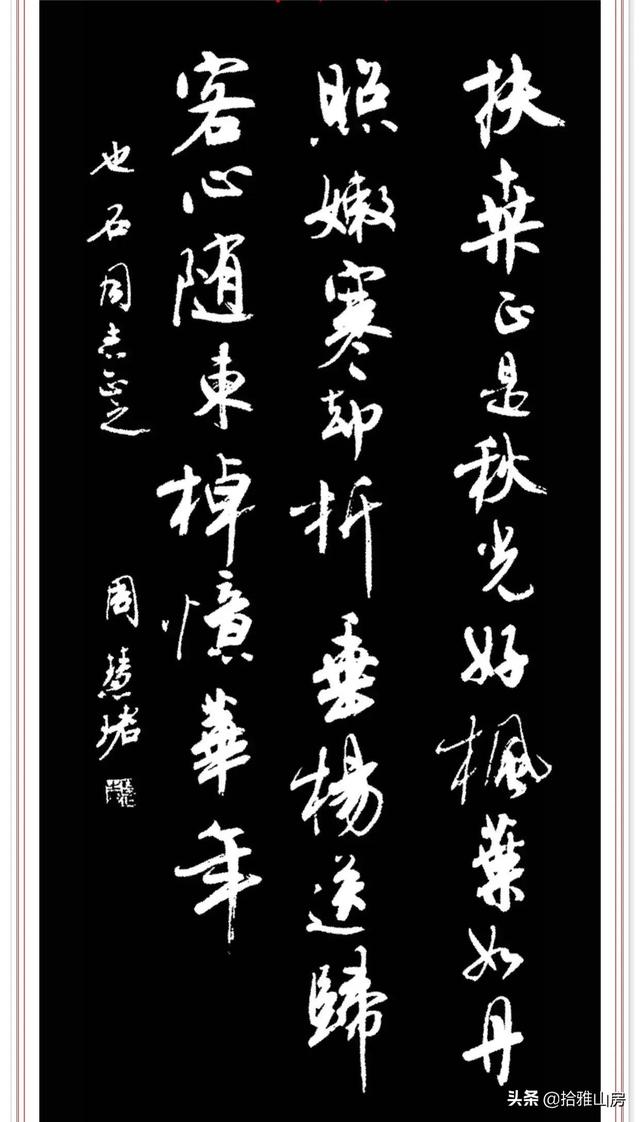 扶桑正是秋光好楓葉如丹
照嫩寒却折垂楊送歸
客心随東棹憶華年
也石同志正之
周慧珺
头条 @拾雅山房